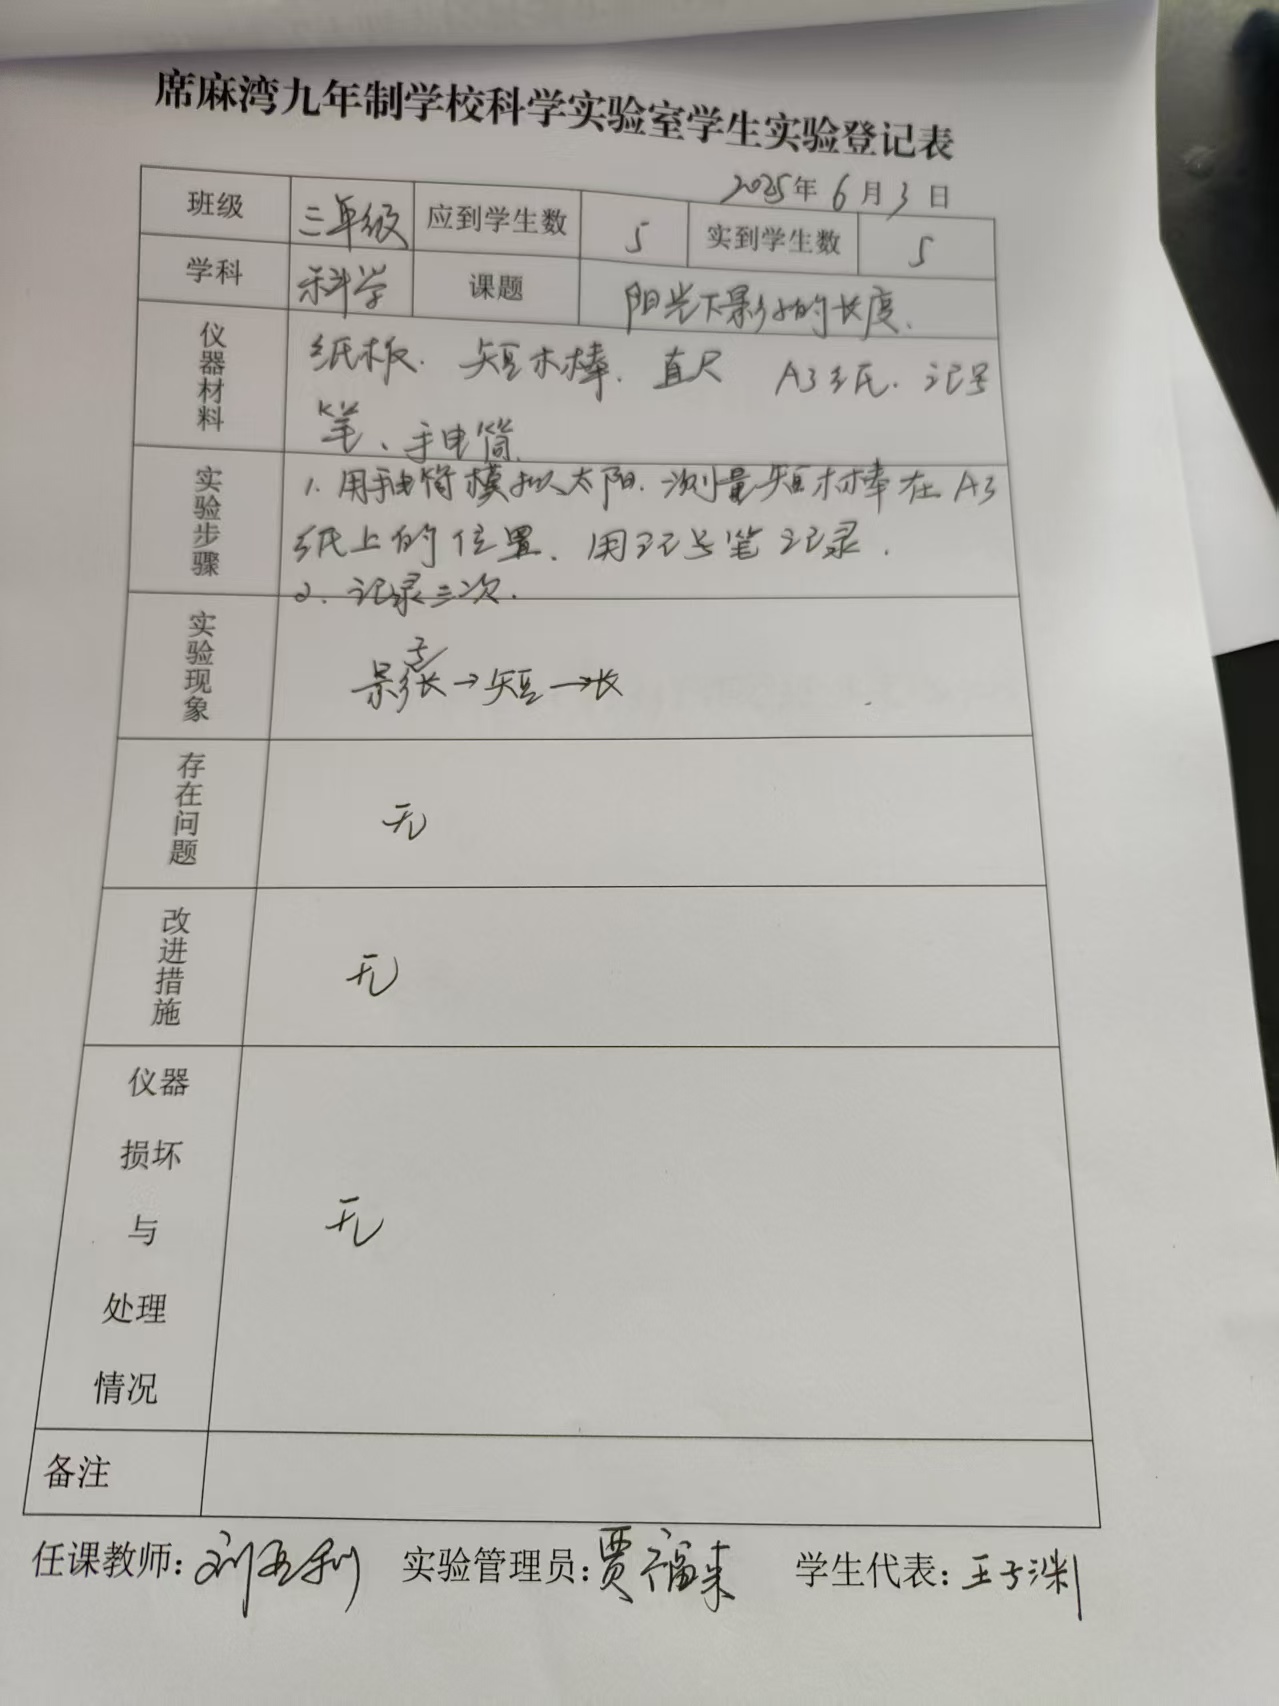 席麻湾九年制学校科学实验室学生实验登记表
2025年6月3日
班级 三年级 应到学生数 5 实到学生数 5
学科 科学 课题 阳光下影子的长度.
仪器材料 纸板. 短木棒. 直尺 A3纸. 记号
笔、手电筒.
实验步骤 1. 用手电筒模拟太阳. 测量短木棒在A3
纸上的位置、用记号笔记录.
2. 记录三次.
实验现象 影子长→短→长
存在问题 无
改进措施 无
仪器
损坏
与 无
处理
情况
备注
任课教师: 刘 利 实验管理员: 贾福来 学生代表: 王子渊